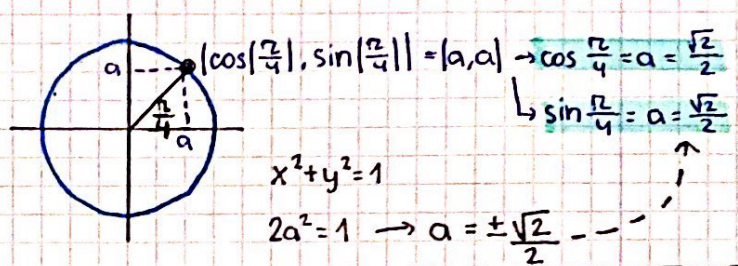 a
(cos(π/4), sin(π/4)) = (a,a) → cos π/4 = a = √2/2
↳ sin π/4 = a = √2/2
π/4
a
x²+y²=1
2a²=1 → a = ±√2/2